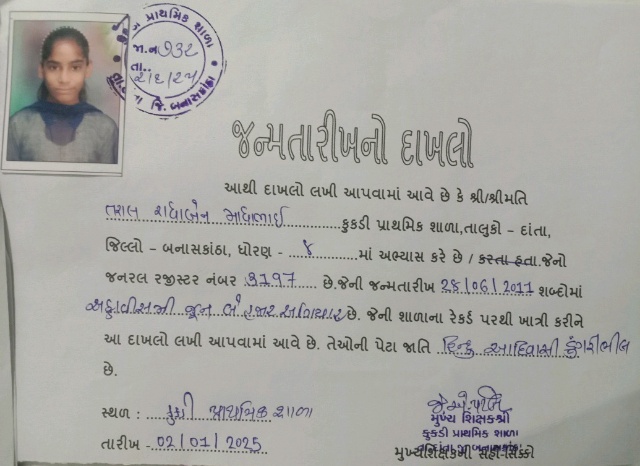 પ્રાથમિક શાળા
જા.નં 732
તા.. 2/6/25
જિ. બનાસકાંઠા
જન્મતારીખનો દાખલો
આથી દાખલો લખી આપવામાં આવે છે કે શ્રી/શ્રીમતિ
તરાલ રાધાબેન માધાભાઈ કુકડી પ્રાથમિક શાળા,તાલુકો – દાંતા,
જિલ્લો – બનાસકાંઠા, ધોરણ - ૪ માં અભ્યાસ કરે છે / કરતા હતા.જેનો
જનરલ રજીસ્ટર નંબર 3197 છે.જેની જન્મતારીખ 28/06/2011 શબ્દોમાં
અઠ્ઠાવીસમી જૂન બે હજાર અગિયાર છે. જેની શાળાના રેકર્ડ પરથી ખાત્રી કરીને
આ દાખલો લખી આપવામાં આવે છે. તેઓની પેટા જાતિ હિન્દુ આદિવાસી ડુંગરીભીલ
છે.
સ્થળ : કુકડી પ્રાથમિક શાળા
તારીખ - 02/01/2025
મુખ્ય શિક્ષકશ્રી
કુકડી પ્રાથમિક શાળા
તા.દાંતા જી.બનાસકાંઠા
મુખ્યશિક્ષકની સહી-સિક્કો